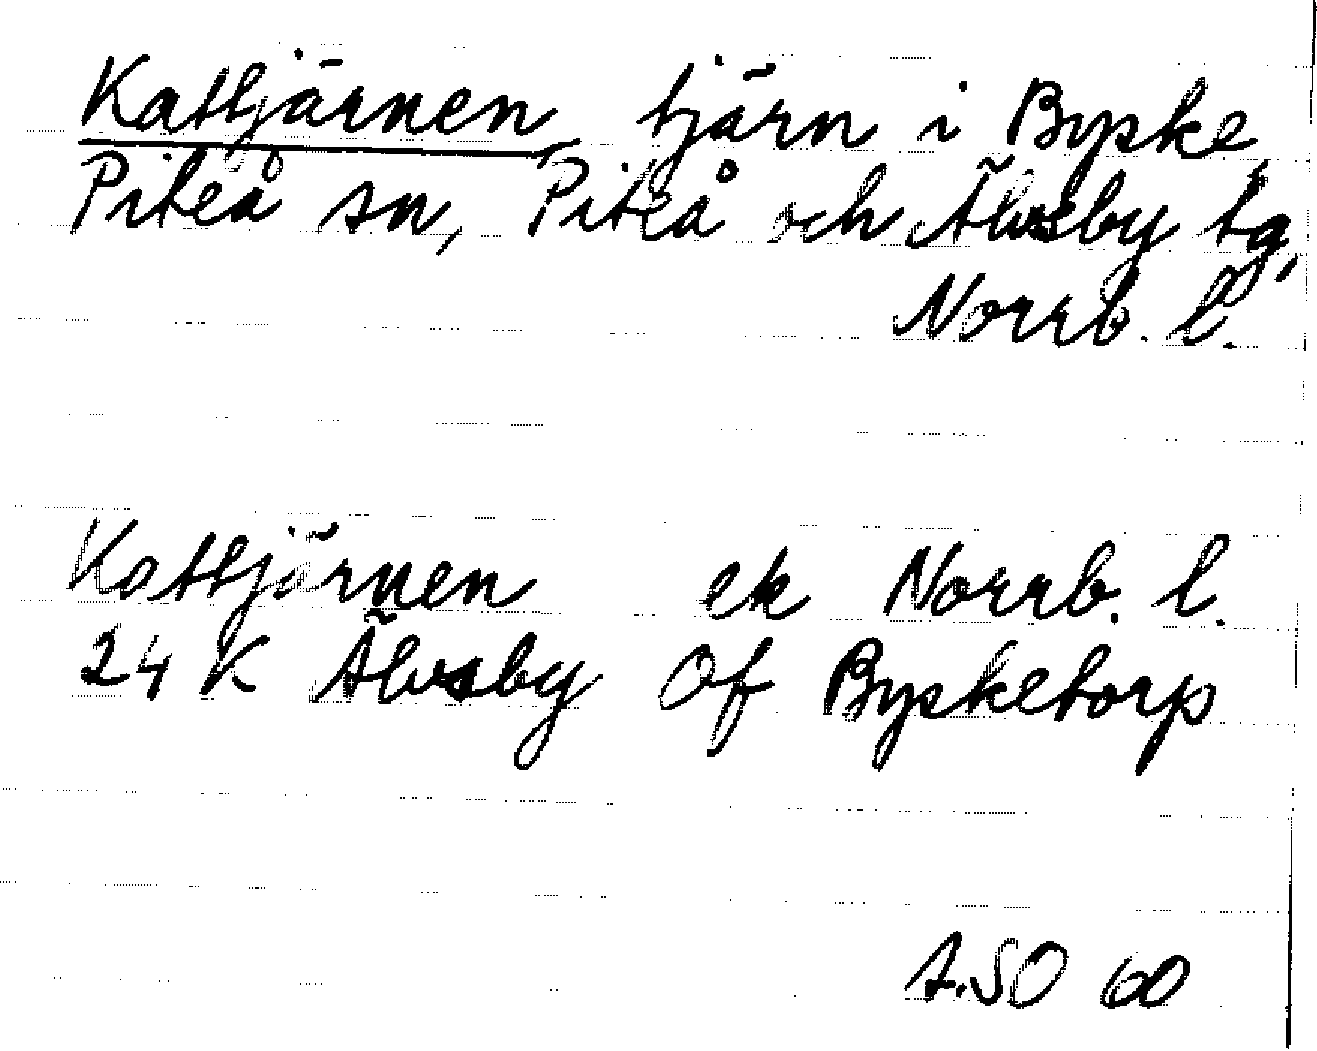 Kattjärnen, tjärn i Byske,
Piteå sn, Piteå och Älvsby tg,
Norrb. l.
Kattjärnen ek Norrb. l.
24 K Älvsby Of Bysketorp
A.SO 60